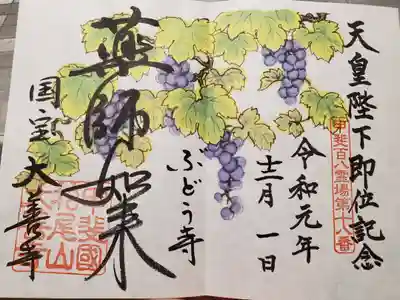 天皇陛下即位記念
甲斐百八霊場第十八番
令和元年
十二月一日
ぶどう寺
薬師如来
国宝大善寺
甲斐國
柏尾山
大善寺